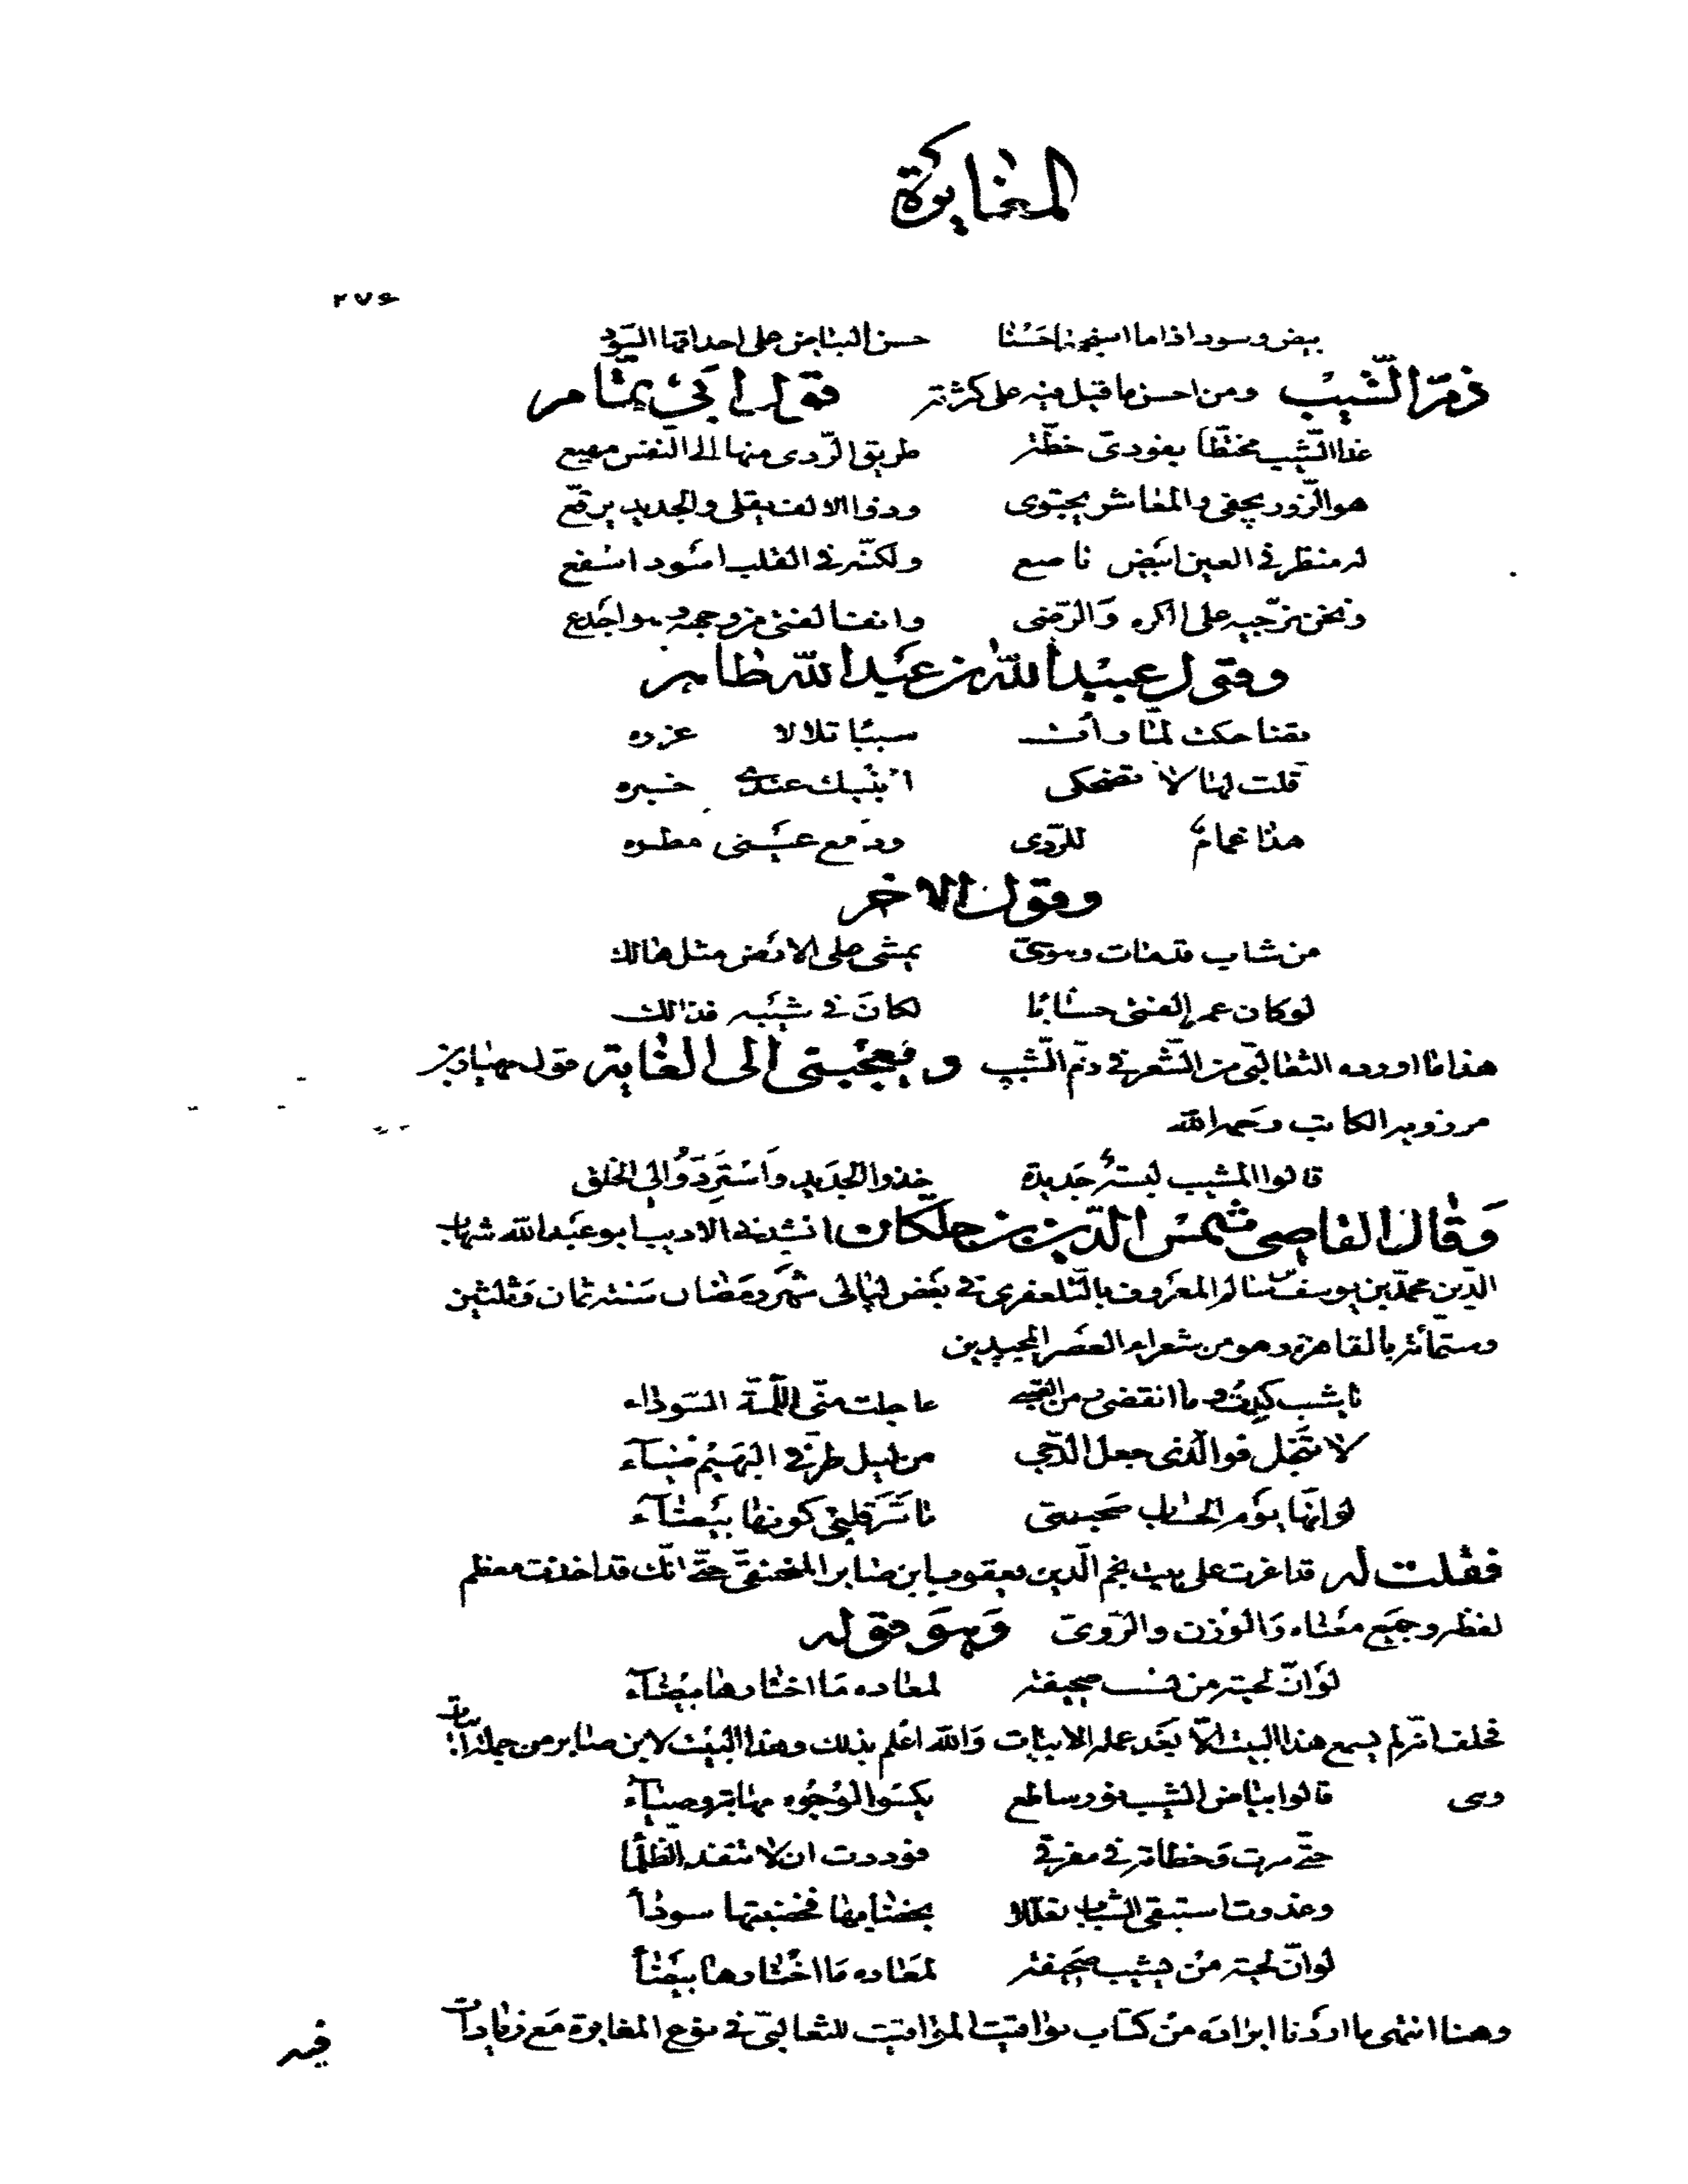 المغايرة
٢٧٤
بيض وسود اذا ما استجمعا حسنا حسن البياض على احداقها السود
ذم الشيب ومن احسن ما قيل فيه على كثرته قول ابي تمام
غدا الشيب مختطا بفودي خطة طريق الردى منها الى النفس مهيع
هو الزور يجفى والمعاشر يجتوى وذو الالف يقلى والجديد يرقع
له منظر في العين ابيض ناصع ولكنه في القلب اسود اسفع
ونحن نرجيه على الكره والرضى وانف الفتى من وجهه وهو اجدع
وقول عبيد الله بن عبد الله طاهر
تضاحكت لما رأت شيبا تلالا غرره
قلت لها لا تضحكي انبيك عندي خبره
هذا غمام للردى ودمع عيني مطره
وقول الاخر
من شاب قد مات وهو حي يمشي على الارض مثل هالك
لو كان عمر الفتى حسابا لكان في شيبه فذالك
هذا ما اورده الثعالبي من الشعر في ذم الشيب ويعجبني الى الغاية قول مهيار بن
مرزويه الكاتب رحمه الله
قالوا المشيب لبسة جديدة خذوا الجديد واستردوا لي الخلق
وقال القاضي شمس الدين بن خلكان انشدني الاديب ابو عبد الله شهاب
الدين محمد بن يوسف بن سالم المعروف بالتلعفري في بعض ليالي شهر رمضان سنة ثمان وثلثين
وستمائة بالقاهرة وهو من شعراء العصر المجيدين
يا شيب كيف وما انقضى زمن الصبى عاجلت مني اللمة السوداء
لا تعجل فوالذي جعل الدجى من ليل طرفي البهيم ضياء
لو انها يوم الحساب صحيفتي ما سر قلبي كونها بيضاء
فقلت له قد اغرت على بيت نجم الدين يعقوب ابن صابر المنجنيقي حتى انك قد اخذت معظم
لفظه وجميع معناه والوزن والروي وهو قوله
لو ان لحية من يشيب صحيفة لمعاده ما اختارها بيضاء
فحلف انه لم يسمع هذا البيت الا بعد عمله الابيات والله اعلم بذلك وهذا البيت لابن صابر من جملة ابيات
وهي قالوا بياض الشيب نور ساطع يكسو الوجوه مهابة وضياء
حتى سرت وخطاته في مفرقي فوددت ان لا تفقد الظلما
وغدوت استبقي الشباب تعللا بخضابها فخضبتها سوداأ
لو ان لحية من يشيب صحيفة لمعاده ما اختارها بيضاأ
وهنا انتهى ما اردنا ايراده من كتاب يواقيت المواقيت للثعالبي في نوع المغايرة مع زيادات
فيه